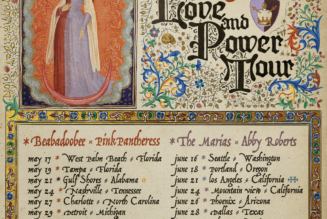 Love and
Power
Tour
*Beabadoobee * PinkPantheress
may 17 * West Palm Beath * Florida
may 19 * Tampa * Florida
may 21 * Gulf Shores * Alabama
may 24 * Nashville * Tennesser
may 27 * Charlotte * North Carolina
may 29 * Detroit * Michigan
*The Marías * Abby Roberts
june 16 * Seattle * Washington
june 18 * portland * Oregon
june 21 * los Angeles * California
june 24 * Mountain view * California
june 26 * Phoenix * Arizona
june 28 * Dallas * Texas